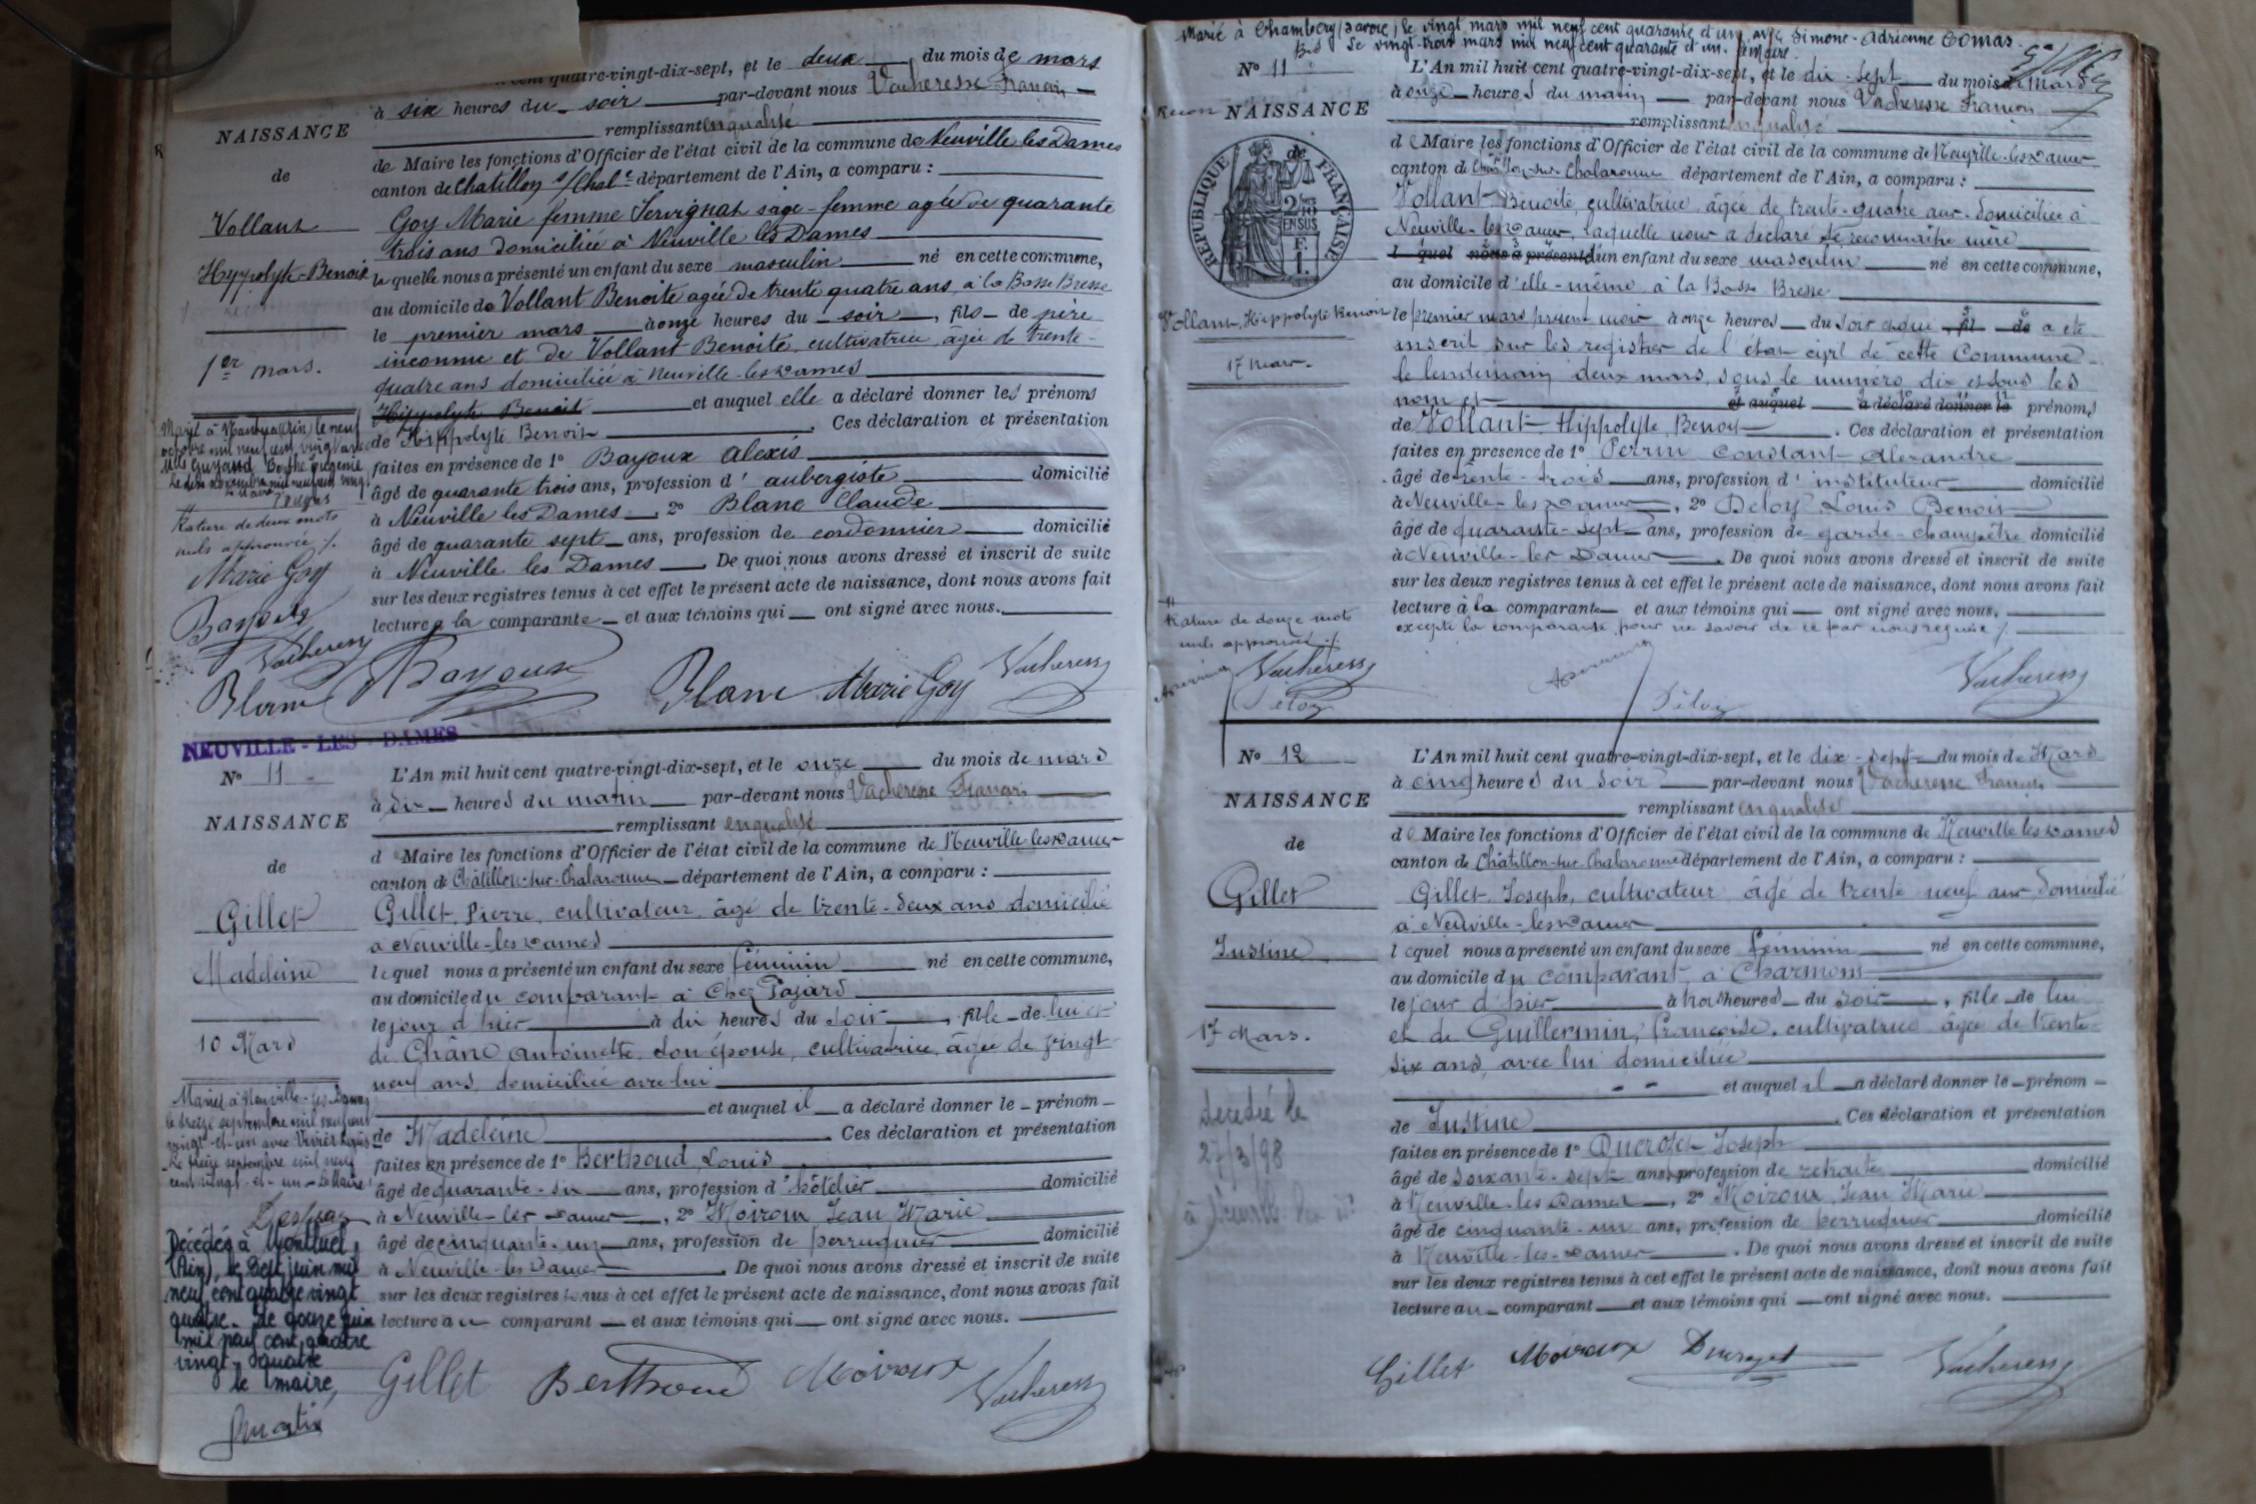 cent quatre-vingt-dix-sept, et le deux du mois de mars
à six heures du soir par-devant nous Vacheresse François
remplissant en qualité
NAISSANCE
de Maire les fonctions d'Officier de l'état civil de la commune de Neuville les Dames
de
canton de Chatillon s/Chalne département de l'Ain, a comparu :
Vollant
Goy Marie femme Servignat sage-femme agée de quarante
trois ans domiciliée à Neuville les Dames
Hyppolyte-Benoit
la quelle nous a présenté un enfant du sexe masculin né en cette commune,
au domicile de Vollant Benoite agée de trente quatre ans, à la Basse Bresse
le premier mars à onze heures du soir, fils de père
inconnu et de Vollant Benoite cultivatrice âgée de trente-
1er mars.
quatre ans domiciliée à Neuville-les-Dames
Hippolyte Benoit et auquel elle a déclaré donner les prénoms
de Hippolyte Benoit. Ces déclaration et présentation
faites en présence de 1° Bayoux Alexis
âgé de quarante trois ans, profession d'aubergiste domicilié
à Neuville les Dames, 2° Blanc Claude
âgé de quarante sept ans, profession de cordonnier domicilié
à Neuville les Dames. De quoi nous avons dressé et inscrit de suite
sur les deux registres tenus à cet effet le présent acte de naissance, dont nous avons fait
lecture à la comparante et aux témoins qui ont signé avec nous.
Mlle Guyaud Berthe Eugénie
Rature de deux mots
nuls approuvée
Marie Goy
Bayoux
Vacheress
Blanc
Bayoux Blanc Marie Goy Vacheress
NEUVILLE-LES-DAMES
N° 11
L'An mil huit cent quatre-vingt-dix-sept, et le onze du mois de mars
à dix heures du matin par-devant nous Vacheresse François
NAISSANCE
remplissant en qualité
de Maire les fonctions d'Officier de l'état civil de la commune de Neuville les Dames
de
canton de Châtillon-sur-Chalaronne département de l'Ain, a comparu :
Gillet
Gillet, Pierre, cultivateur, âgé de trente-deux ans domicilié
à Neuville-les-Dames
Madeleine
lequel nous a présenté un enfant du sexe féminin né en cette commune,
au domicile du comparant à Chez Pajard
le jour d'hier à dix heures du soir, fille de lui et
10 Mars
de Chânc Antoinette, son épouse, cultivatrice, âgée de vingt-
neuf ans, domiciliée avec lui
et auquel il a déclaré donner le prénom
de Madeleine. Ces déclaration et présentation
faites en présence de 1° Berthoud, Louis
âgé de quarante-six ans, profession d'hôtelier domicilié
à Neuville-les-Dames, 2° Moiroux Jean Marie
âgé de cinquante-un ans, profession de perruquier domicilié
à Neuville-les-Dames. De quoi nous avons dressé et inscrit de suite
sur les deux registres tenus à cet effet le présent acte de naissance, dont nous avons fait
lecture au comparant et aux témoins qui ont signé avec nous.
Mariée à Neuville-les-Dames
le treize septembre mil neuf cent
vingt-et-un avec
Le treize septembre mil neuf
cent vingt-et-un Le Maire
Décédée à Montluel
(Ain), le sept juin mil
neuf cent quatre vingt
quatre. Le douze juin
mil neuf cent quatre
vingt quatre
le maire,
Gillet Berthoud Moiroux Vacheress
Marié à Chambéry (Savoie) le vingt mars mil neuf cent quarante et un avec Simone-Adrienne Comas.
Le vingt-trois mars mil neuf cent quarante et un.
N° 11
L'An mil huit cent quatre-vingt-dix-sept, et le dix-sept du mois de Mars
à onze heures du matin par-devant nous Vacheresse François
Recon NAISSANCE
remplissant en qualité
de
de Maire les fonctions d'Officier de l'état civil de la commune de Neuville-les-Dames
canton de Châtillon-sur-Chalaronne département de l'Ain, a comparu :
RÉPUBLIQUE FRANÇAISE
Vollant Benoite, cultivatrice, âgée de trente-quatre ans domiciliée à
Neuville-les-Dames, laquelle nous a déclaré se reconnaître mère
l quel nous a présenté d'un enfant du sexe masculin né en cette commune,
au domicile d'elle-même à la Basse Bresse
Vollant, Hippolyte Benoit
le premier mars présent mois à onze heures du soir et que fil de a été
inscrit sur les registres de l'état civil de cette Commune
17 Mars.
le lendemain deux mars, sous le numéro dix et sous les
nom et et auquel a déclaré donner le prénoms
de Vollant Hippolyte, Benoit. Ces déclaration et présentation
faites en présence de 1° Perrin Constant Alexandre
âgé de trente-trois ans, profession d'instituteur domicilié
à Neuville-les-Dames, 2° Deloy Louis Benoit
âgé de quarante-sept ans, profession de garde-champêtre domicilié
à Neuville-les-Dames. De quoi nous avons dressé et inscrit de suite
sur les deux registres tenus à cet effet le présent acte de naissance, dont nous avons fait
lecture à la comparante et aux témoins qui ont signé avec nous.
excepté la comparante pour ne savoir de ce par nous requise
Rature de douze mots
nuls approuvée
Vacheress
Deloy
Deloy Vacheress
N° 12
L'An mil huit cent quatre-vingt-dix-sept, et le dix-sept du mois de Mars
à cinq heures du soir par-devant nous Vacheresse François
NAISSANCE
remplissant en qualité
de Maire les fonctions d'Officier de l'état civil de la commune de Neuville les Dames
de
canton de Châtillon-sur-Chalaronne département de l'Ain, a comparu :
Gillet
Gillet, Joseph, cultivateur âgé de trente neuf ans domicilié
à Neuville-les-Dames
Justine
lequel nous a présenté un enfant du sexe féminin né en cette commune,
au domicile du comparant à Charmont
le jour d'hier à heures du soir, fille de lui
17 Mars.
et de Guillermin, Françoise, cultivatrice âgée de trente-
six ans, avec lui domiciliée
et auquel il a déclaré donner le prénom
décédée le
27/3/98
de Justine. Ces déclaration et présentation
faites en présence de 1° Joseph
âgé de soixante-sept ans, profession de retraité domicilié
à Neuville-les-Dames, 2° Moiroux, Jean Marie
âgé de cinquante-un ans, profession de perruquier domicilié
à Neuville-les-Dames. De quoi nous avons dressé et inscrit de suite
sur les deux registres tenus à cet effet le présent acte de naissance, dont nous avons fait
lecture au comparant et aux témoins qui ont signé avec nous.
Gillet Moiroux Vacheress